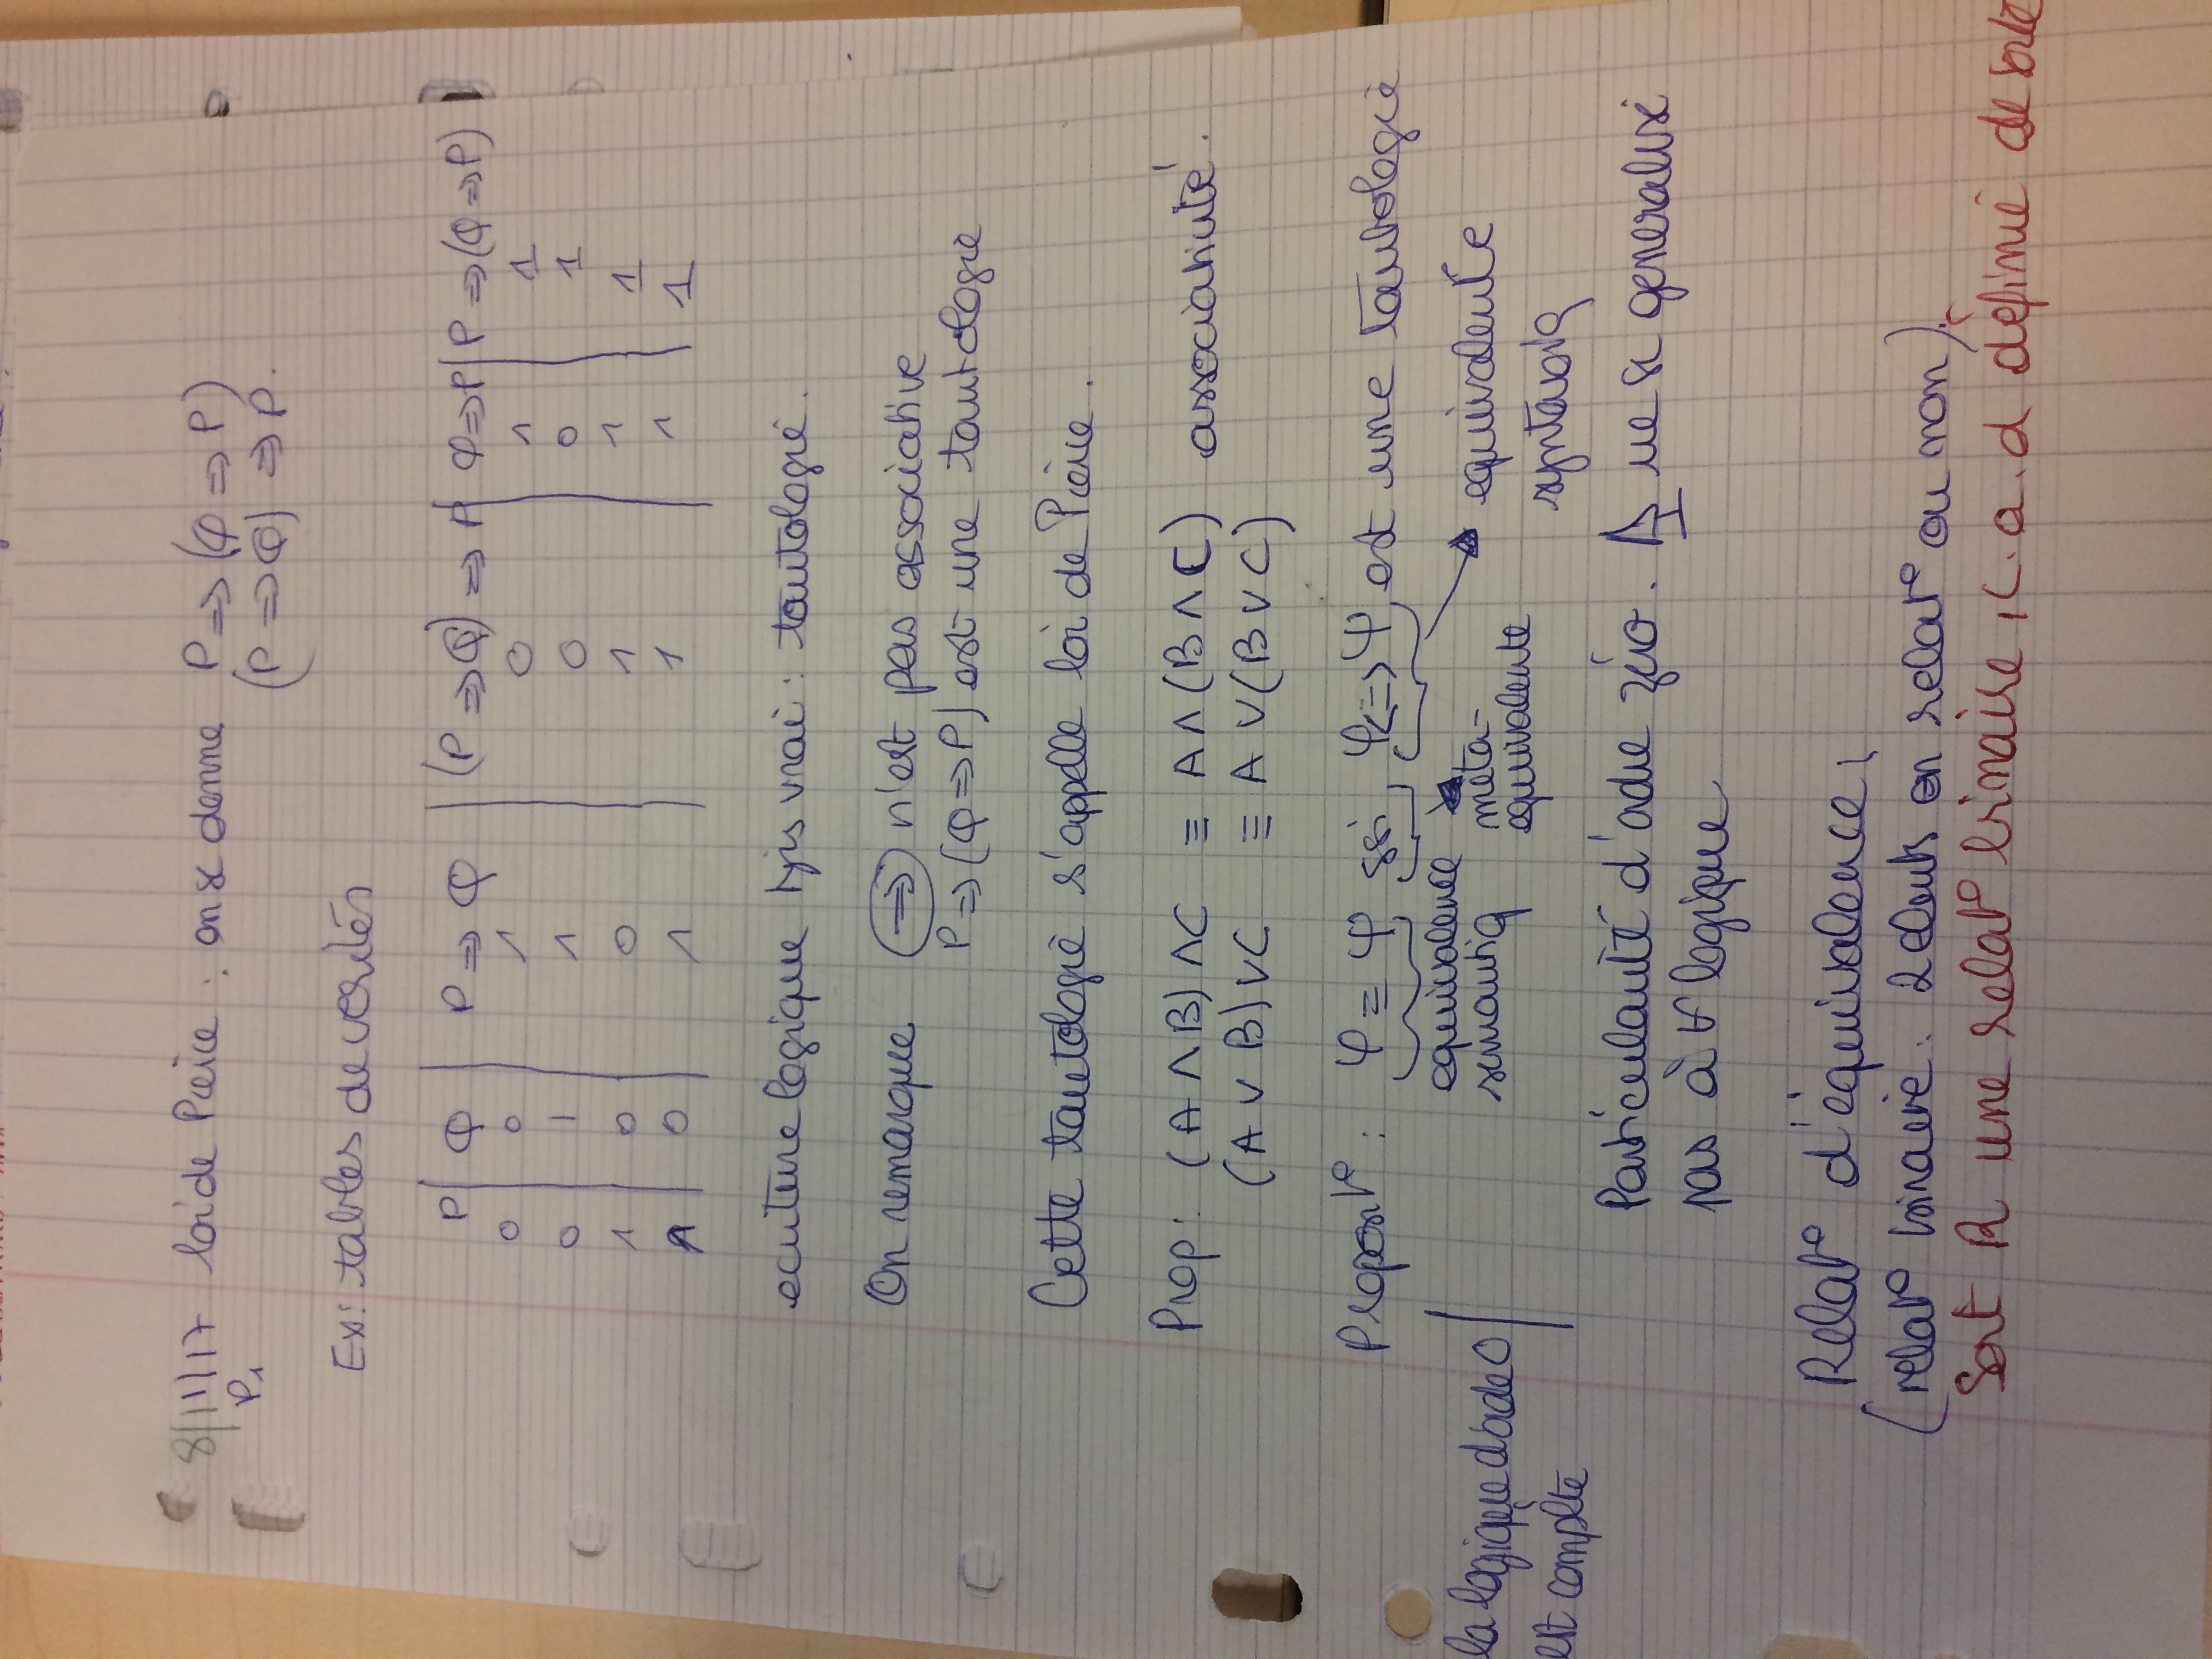 8/11/17 loi de Pieice : on se donne P ⇒ (Q ⇒ P)
P1 (P ⇒ Q) ⇒ P.
Ex: tables de verités
P | Q | P ⇒ Q | (P ⇒ Q) ⇒ P | Q ⇒ P | P ⇒ (Q ⇒ P)
0 0 1 0 1 1
0 1 1 0 0 1
1 0 0 1 1 1
1 0 1 1 1 1
ecriture logique tjrs vrai : tautologie.
On remarque ⇒ n'est pas associative
P ⇒ (Q ⇒ P) est une tautologie
Cette tautologie s'appelle loi de Pieice.
Prop: (A ∧ B) ∧ C ≡ A ∧ (B ∧ C) associativité.
(A ∨ B) ∨ C ≡ A ∨ (B ∨ C)
Proposit° : φ ≡ ψ ssi, φ <=> ψ, est une tautologie
equivalence semantiq
méta-equivalente
equivalente syntaxiq
la logique d'ordre 0
est complète
Particularité d'ordre zéro. ⚠ ne se generalise
pas à ∀ logique
Relat° d'équivalence,
(relat° binaire : 2 elmts en relat° ou non).
Soit R une relat° binaire, c.a.d définie de sorte